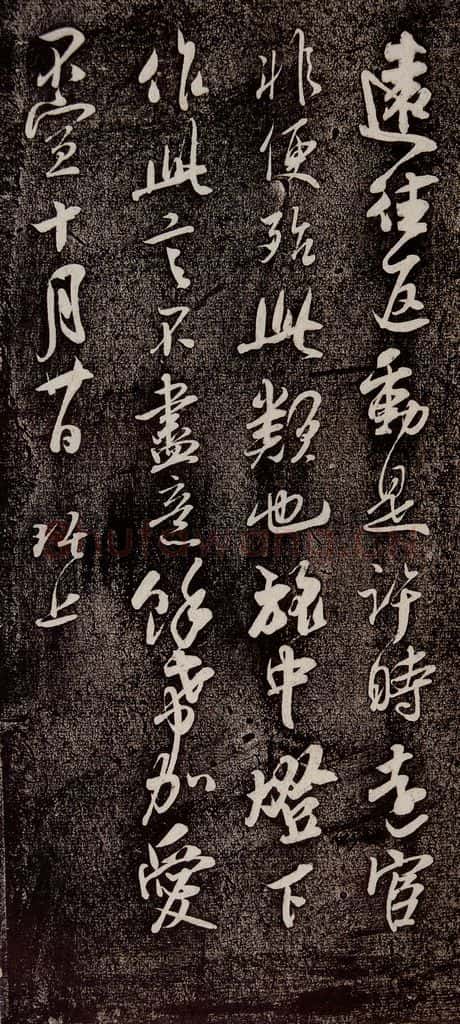 遠往返動是許時遠官
非便殆此類也旅中燈下
作此言不盡意餘希加愛
不宣十月廿日 珎上
shufawang.cn